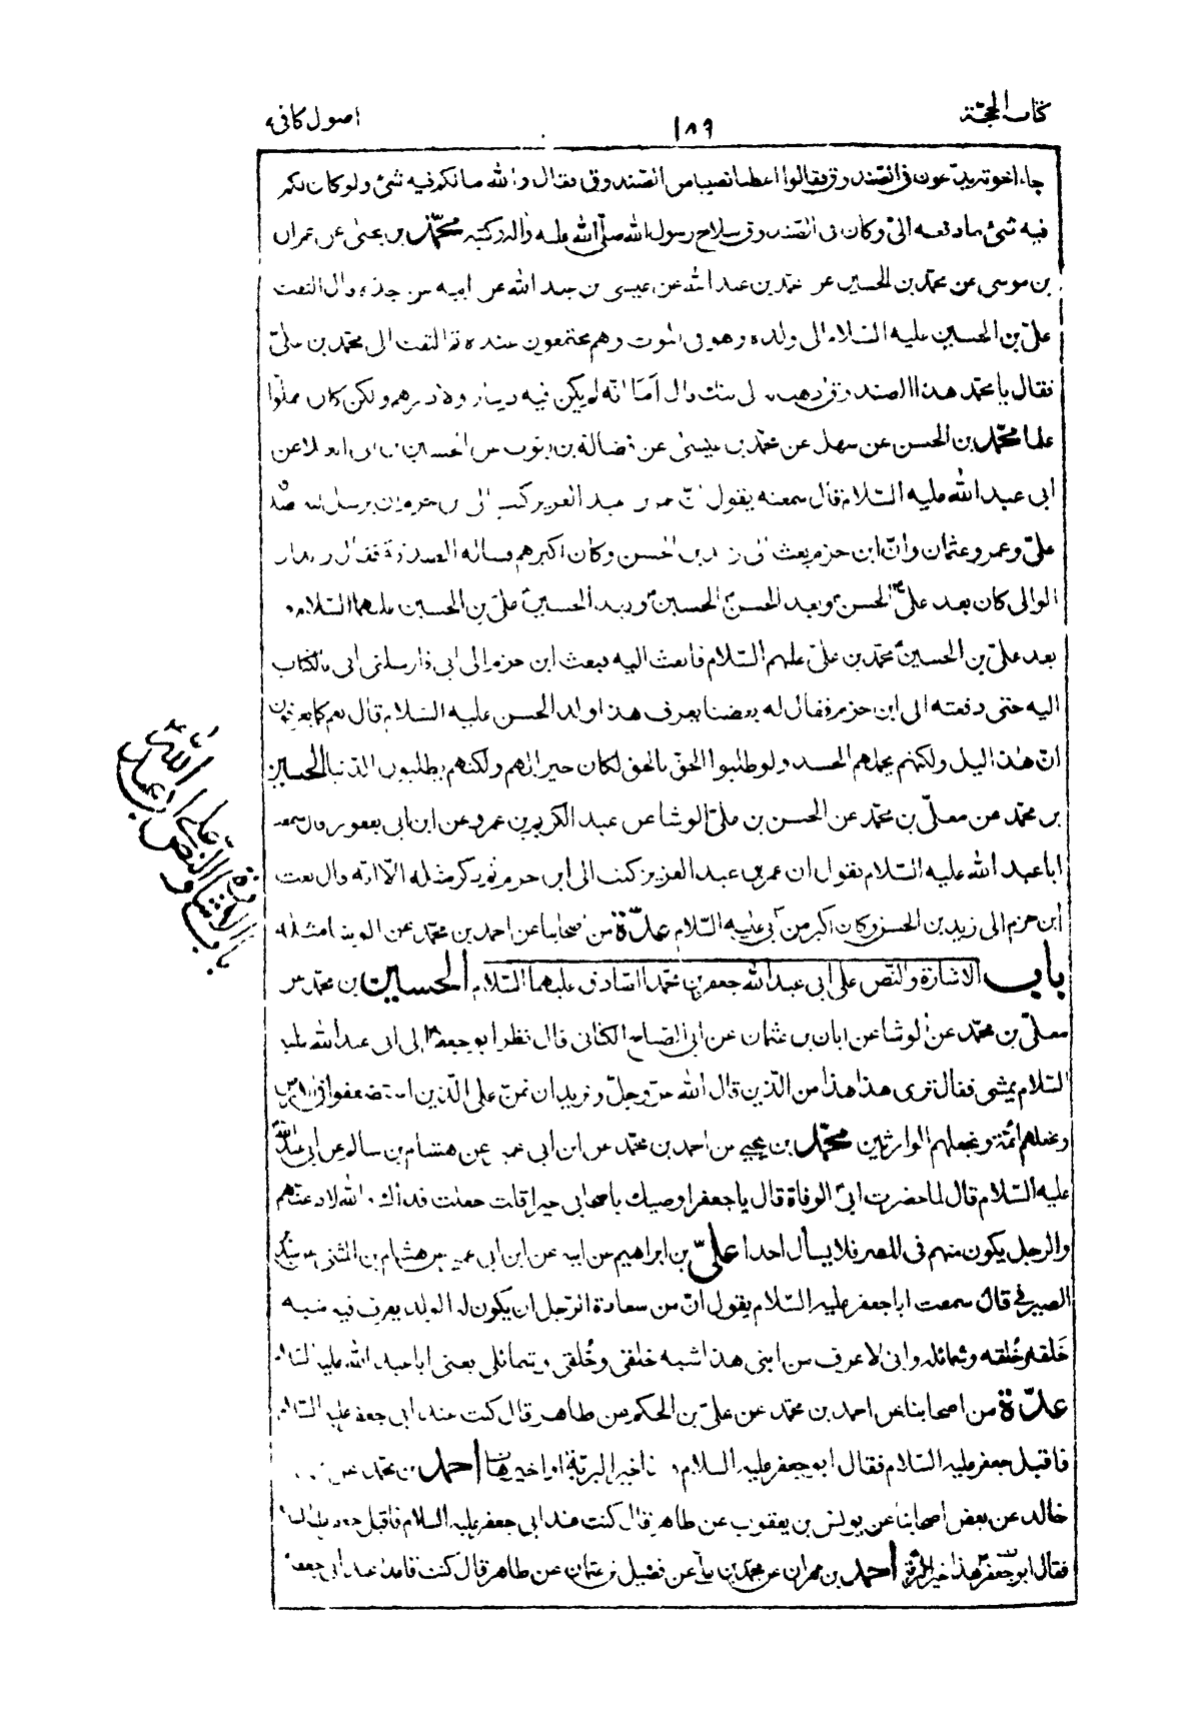 كتاب الحجّة
١٨٩
اصول كافى
جاء اخوته يدّعون فى الصّندوق فقالوا اعطنا نصيبنا من الصّندوق فقال والله ما لكم فيه شئ ولو كان لكم
فيه شئ ما دفعه الىّ وكان فى الصّندوق سلاح رسول الله صلّى الله عليه واله وكتبه محمّد بن يحيى عن عمران
بن موسى عن محمّد بن الحسين عن محمّد بن عبد الله عن عيسى بن عبد الله عن ابيه عن جدّه قال التفت
علىّ بن الحسين عليه السّلام الى ولده وهو فى الموت وهم مجتمعون عنده ثمّ التفت الى محمّد بن علىّ
فقال يا محمّد هذا الصندوق اذهب به الى بيتك قال اما انّه لم يكن فيه دينار ولا درهم ولكن كان مملوّا
علما محمّد بن الحسن عن سهل عن محمّد بن عيسى عن فضالة بن ايّوب عن الحسين بن ابى العلا عن
ابى عبد الله عليه السّلام قال سمعته يقول انّ عمر بن عبد العزيز كتب الى بن حزم ان يرسل اليه
علىّ وعمر وعثمان وانّ ابن حزم بعث الى زيد بن الحسن وكان اكبرهم فساله الصدقة فقال زيد ان
الوالى كان بعد علىّ الحسن وبعد الحسن الحسين وبعد الحسين علىّ بن الحسين عليهما السّلام و
بعد علىّ بن الحسين محمّد بن علىّ عليهم السّلام فابعث اليه فبعث ابن حزم الى ابى فارسلنى ابى بالكتاب
اليه حتى دفعته الى ابن حزم فقال له بعضنا يعرف هذا ولد الحسن عليه السّلام قال نعم كما يعرفون
انّ هذا اليل ولكنهم يحملهم الحسد ولو طلبوا الحقّ بالحق لكان خيرا لهم ولكنهم يطلبون الدّنيا الحسين
بن محمّد عن معلّى بن محمّد عن الحسن بن علىّ الوشا عن عبد الكريم بن عمرو عن ابن ابى يعفور قال سمعت
ابا عبد الله عليه السّلام يقول ان عمر بن عبد العزيز كتب الى ابن حزم ثم ذكر مثله الّا انّه قال بعث
ابن حزم الى زيد بن الحسن وكان اكبر من ابى عليه السّلام عدّة من اصحابنا عن احمد بن محمّد عن الوشا مثله
باب الاشارة والنّص على ابى عبد الله جعفر بن محمّد الصّادق عليهما السّلام الحسين بن محمّد عن
معلّى بن محمّد عن الوشا عن ابان بن عثمان عن ابى الصّباح الكنانى قال نظر ابو جعفر الى ابى عبد الله عليه
السّلام يمشى فقال ترى هذا هذا من الّذين قال الله عزّ وجلّ ونريد ان نمنّ على الّذين استضعفوا فى الارض
ونجعلهم ائمّة ونجعلهم الوارثين محمّد بن يحيى عن احمد بن محمّد عن ابن ابى عمير عن هشام بن سالم عن ابى عبد الله
عليه السّلام قال لما حضرت ابى الوفاة قال يا جعفر اوصيك باصحابى خيرا قلت جعلت فداك والله لادعنّهم
والرجل يكون منهم فى المصر فلا يسأل احدا علىّ بن ابراهيم عن ابيه عن ابن ابى عمير عن هشام بن المثنى عن سدير
الصيرفى قال سمعت ابا جعفر عليه السّلام يقول انّ من سعادة الرّجل ان يكون له الولد يعرف فيه شبه
خَلقه وخُلقه وشمائله وانى لا عرف من ابنى هذا شبه خلقى وخُلقى وشمائلى يعنى ابا عبد الله عليه السّلام
عدّة من اصحابنا عن احمد بن محمّد عن علىّ بن الحكم عن طاهر قال كنت عند ابى جعفر عليه السّلام
فاقبل جعفر عليه السّلام فقال ابو جعفر عليه السلام هذا خير البريّة او اخير احمد بن محمّد عن
خالد عن بعض اصحابنا عن يونس بن يعقوب عن طاهر قال كنت عند ابى جعفر عليه السلام فاقبل جعفر عليه السلام
فقال ابو جعفر هذا خير البريّة احمد بن مهران عن محمّد بن علىّ عن فضيل بن عثمان عن طاهر قال كنت قاعدا عند ابى جعفر
باب الاشارة والنّص على ابى عبد الله